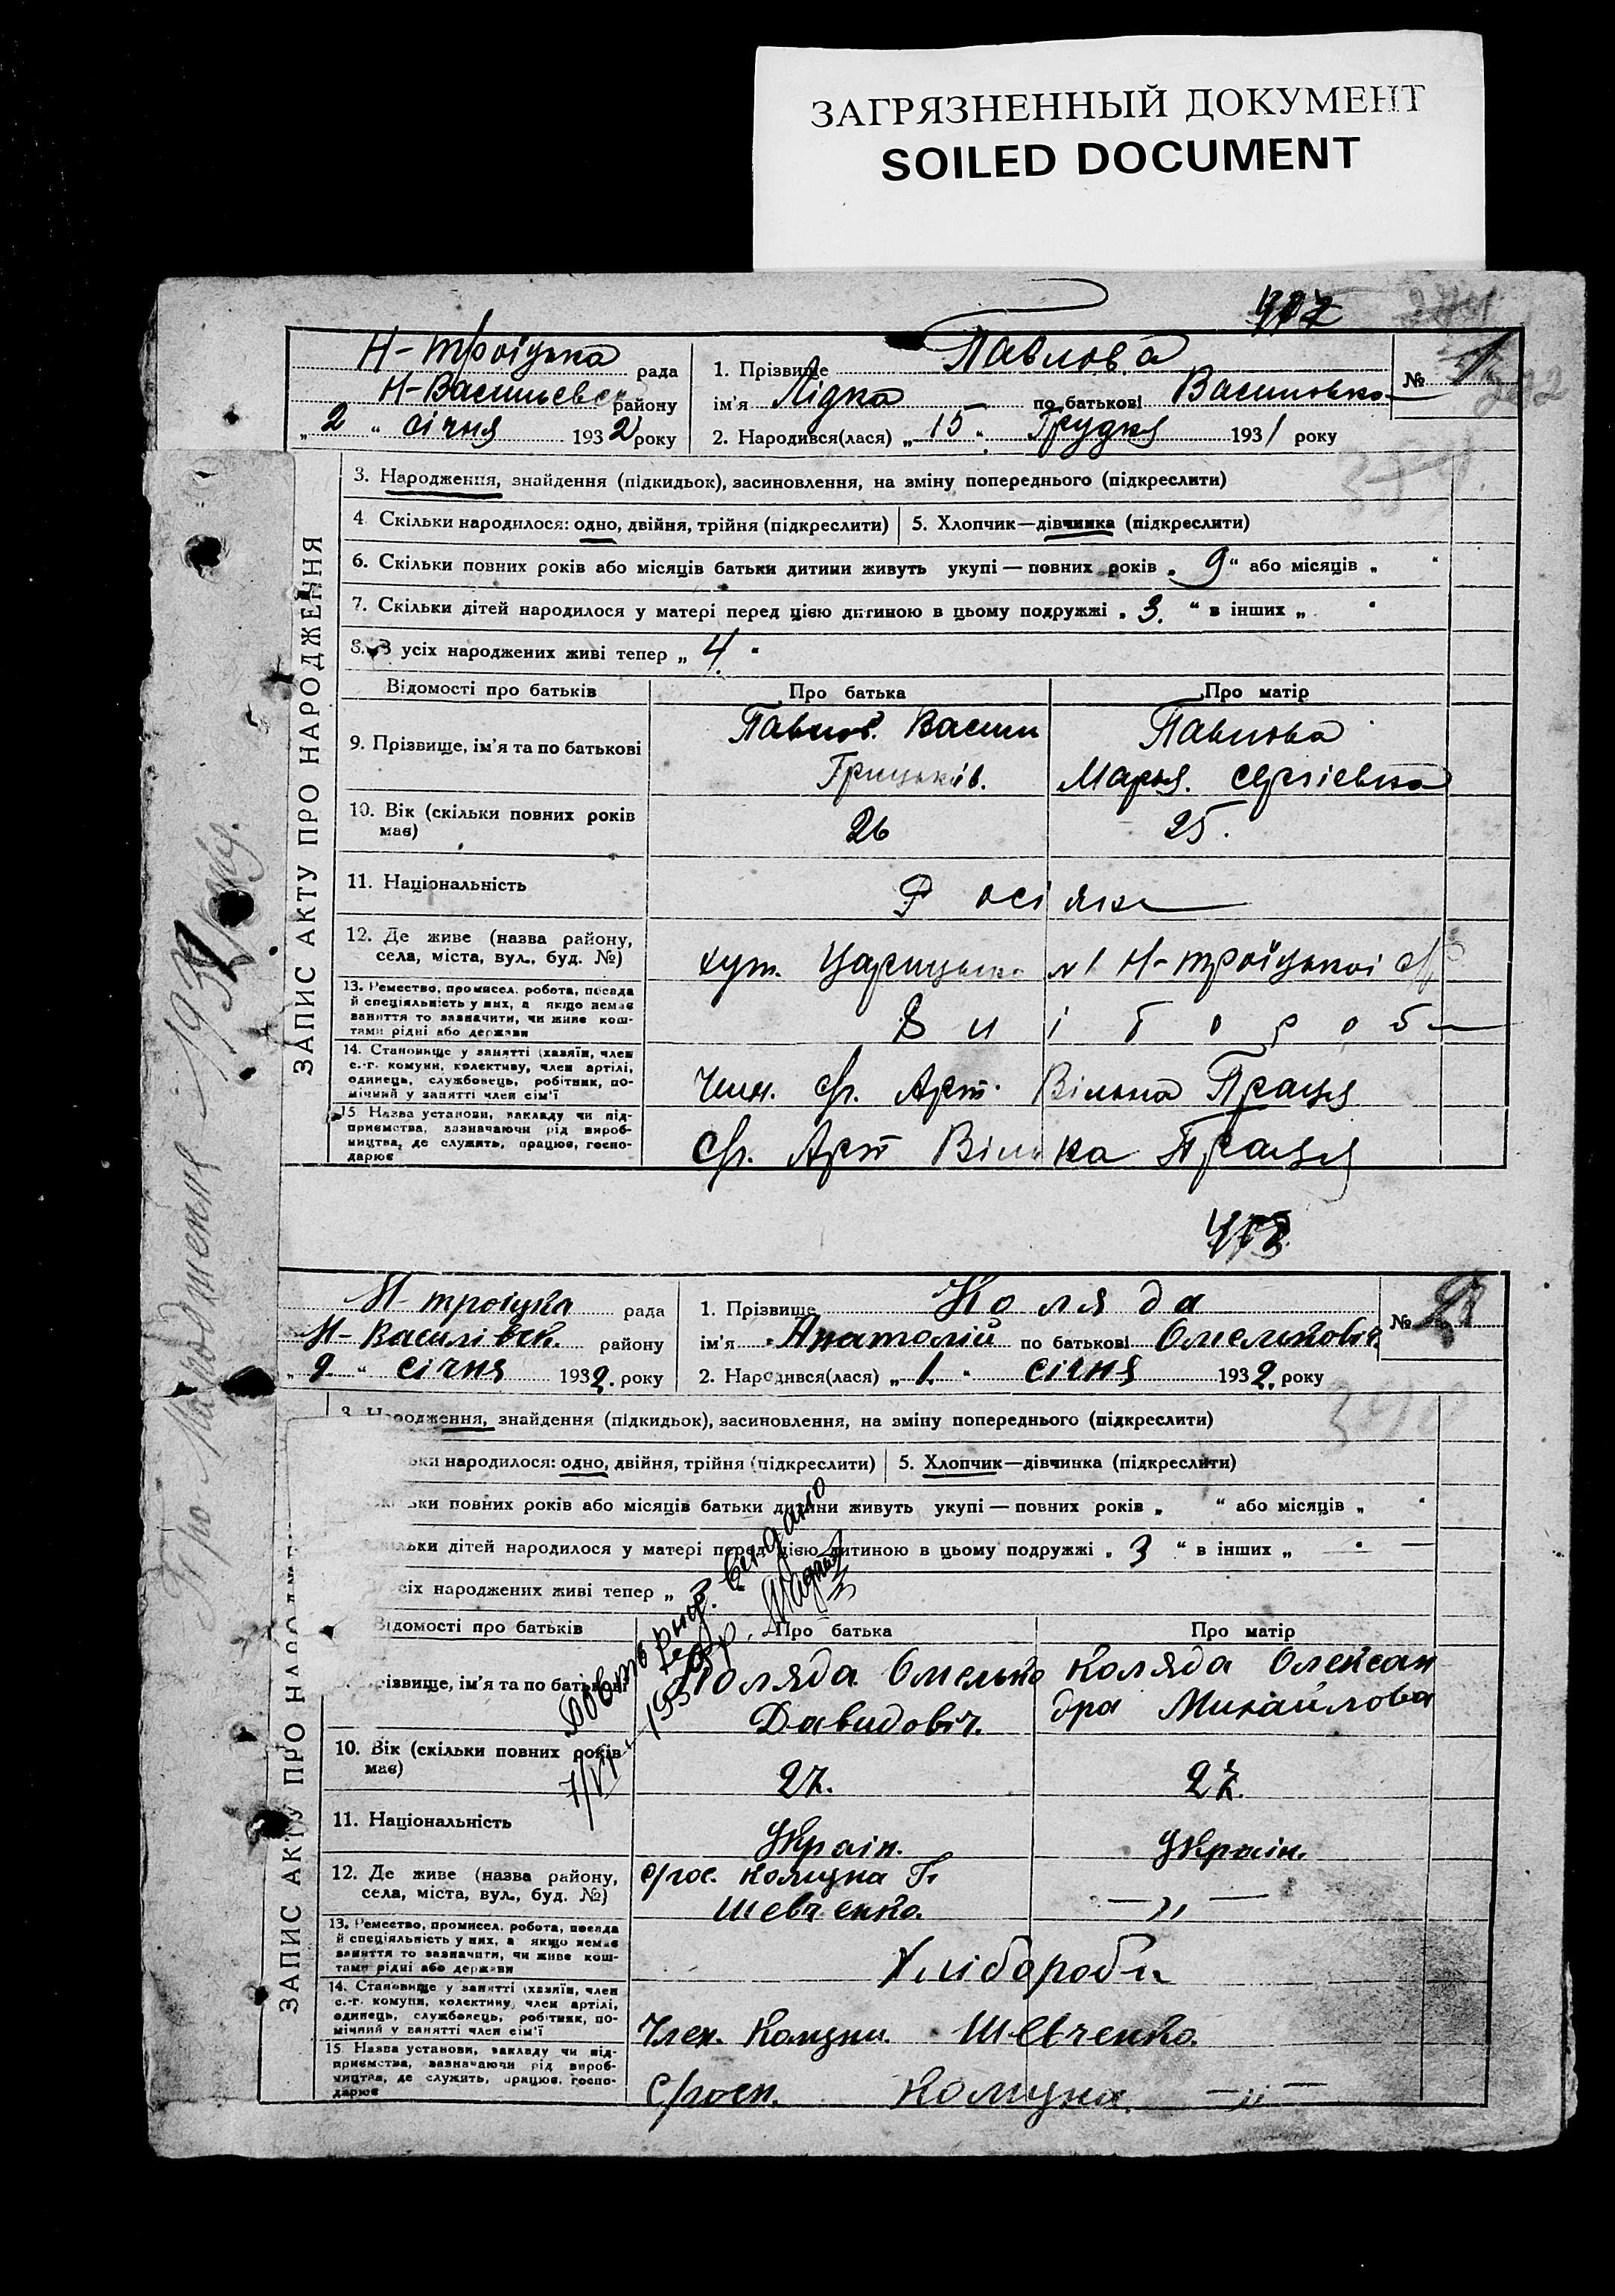 ЗАГРЯЗНЕННЫЙ ДОКУМЕНТ
SOILED DOCUMENT
Н-Троїцька рада
Н-Васильевськ району
„ 2 “ січня 1932 року
1. Прізвище Павлова
ім'я Лідка по батькові Васильовна
2. Народився(лася) „ 15 “ Грудня 1931 року
№ 1
ЗАПИС АКТУ ПРО НАРОДЖЕННЯ
3. Народження, знайдення (підкидьок), засиновлення, на зміну попереднього (підкреслити)
4. Скільки народилося: одно, двійня, трійня (підкреслити) 5. Хлопчик—дівчинка (підкреслити)
6. Скільки повних років або місяців батьки дитини живуть укупі — повних років „ 9 “ або місяців „ “
7. Скільки дітей народилося у матері перед цією дитиною в цьому подружжі „ 3. “ в інших „ “
8. З усіх народжених живі тепер „ 4 “
Відомості про батьків Про батька Про матір
9. Прізвище, ім'я та по батькові Павлов. Васил Павлова
Грицьків. Марія. Сергієвна
10. Вік (скільки повних років має) 26 25.
11. Національність Росіяне
12. Де живе (назва району, села, міста, вул., буд. №) хут. №1 Н-Троїцької
13. Ремество, промисел, робота, посада
й спеціяльність у них, а якщо немає
заняття то зазначити, чи живе кош-
тами рідні або держави
14. Становище у занятті (хазяїн, член
с.-г. комуни, колективу, член артілі,
одинець, службовець, робітник, по-
мічний у занятті член сім'ї
Член. Арт. Вільна Праця
15. Назва установи, закладу чи під-
приємства, зазначаючи рід вироб-
ництва, де служить, працює, госпо-
дарює
Арт Вільна Праця
Про народження 1932
Н-Троїцька рада
Н-Василівськ. району
„ 2. “ січня 1932. року
1. Прізвище Коляда
ім'я Анатолій по батькові Омельковіч
2. Народився(лася) „ 1. “ січня 1932. року
№ 2
ЗАПИС АКТУ ПРО
Народження, знайдення (підкидьок), засиновлення, на зміну попереднього (підкреслити)
народилося: одно, двійня, трійня (підкреслити) 5. Хлопчик—дівчинка (підкреслити)
повних років або місяців батьки дитини живуть укупі — повних років „ “ або місяців „ “
дітей народилося у матері перед цією дитиною в цьому подружжі „ 3 “ в інших „ — “ —
усіх народжених живі тепер „ 3. “
Відомості про батьків Про батька Про матір
Прізвище, ім'я та по батькові Коляда Омелько Коляда Олексан
Давидовіч. дра Михайлова
10. Вік (скільки повних років має) 27. 27.
11. Національність Україн. Україн.
12. Де живе (назва району, села, міста, вул., буд. №) с/гос. комуна Т.
Шевченко. — „ —
13. Ремество, промисел, робота, посада
й спеціяльність у них, а якщо немає
заняття то зазначити, чи живе кош-
тами рідні або держави
Хлібороби
14. Становище у занятті (хазяїн, член
с.-г. комуни, колективу, член артілі,
одинець, службовець, робітник, по-
мічний у занятті член сім'ї
Член. Комуни. Шевченко.
15. Назва установи, закладу чи під-
приємства, зазначаючи рід вироб-
ництва, де служить, працює, госпо-
дарює
Комуна. — „ —